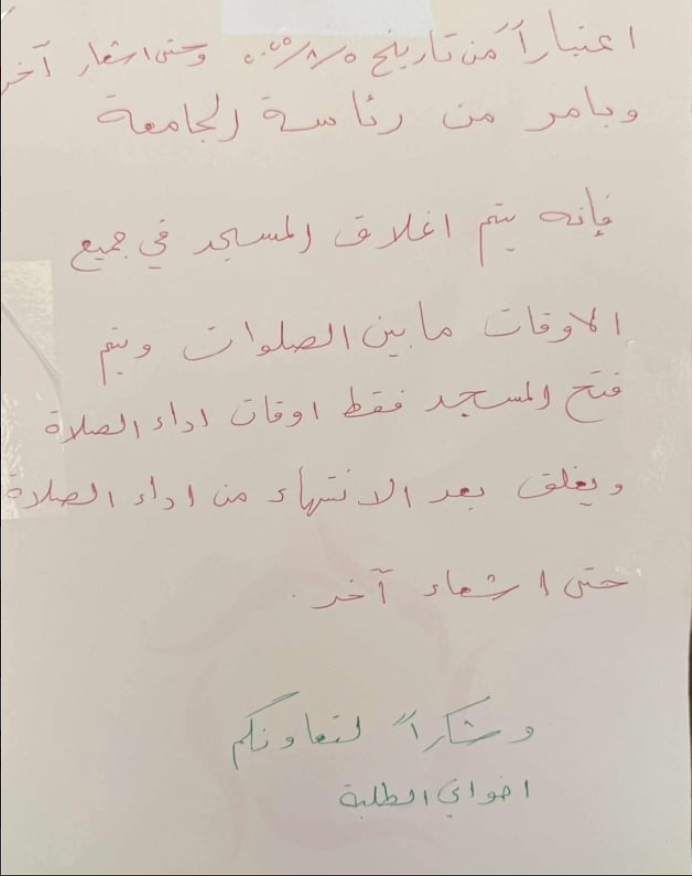 اعتباراً من تاريخ ٢٠٢٥/٨/٥ وحتى اشعار آخر
وبامر من رئاسة الجامعة
فإنه يتم اغلاق المسجد في جميع
الاوقات ما بين الصلوات ويتم
فتح المسجد فقط اوقات اداء الصلاة
ويغلق بعد الانتهاء من اداء الصلاة
حتى اشعار آخر .
وشكراً لتعاونكم
اخواني الطلبة